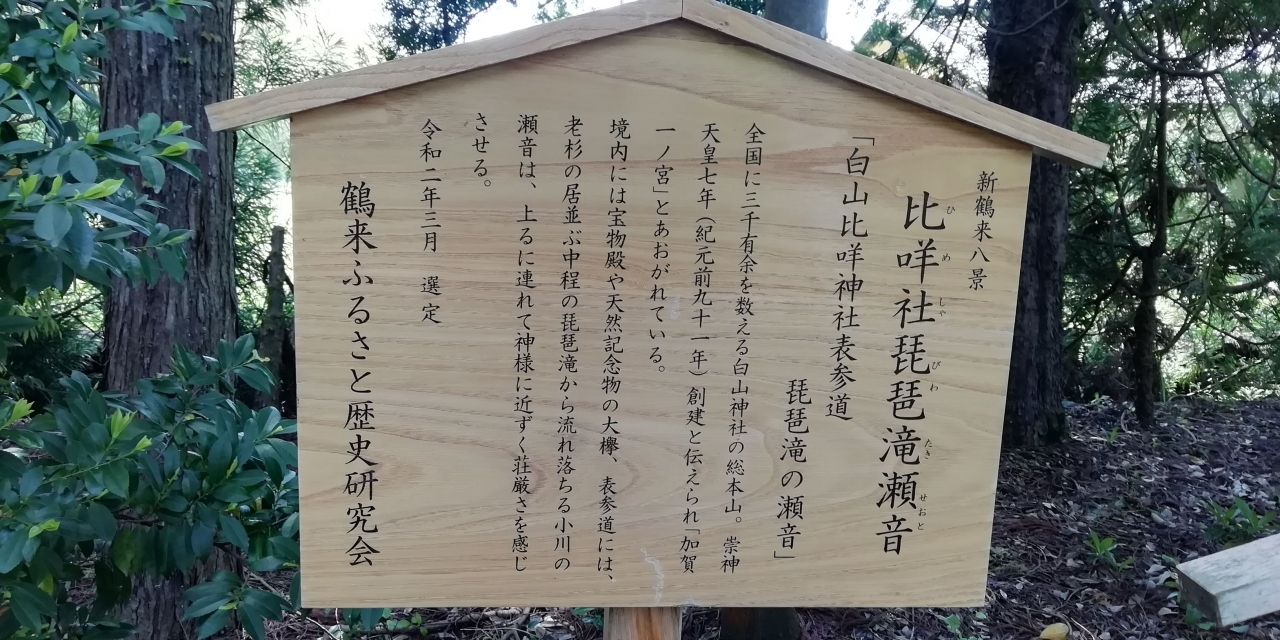 新鶴来八景
比咩社琵琶滝瀬音
ひめしゃびわたきせおと
「白山比咩神社表参道
琵琶滝の瀬音」
全国に三千有余を数える白山神社の総本山。崇神
天皇七年（紀元前九十一年）創建と伝えられ「加賀
一ノ宮」とあおがれている。
境内には宝物殿や天然記念物の大欅、表参道には、
老杉の居並ぶ中程の琵琶滝から流れ落ちる小川の
瀬音は、上るに連れて神様に近ずく荘厳さを感じ
させる。
令和二年三月　選定
鶴来ふるさと歴史研究会